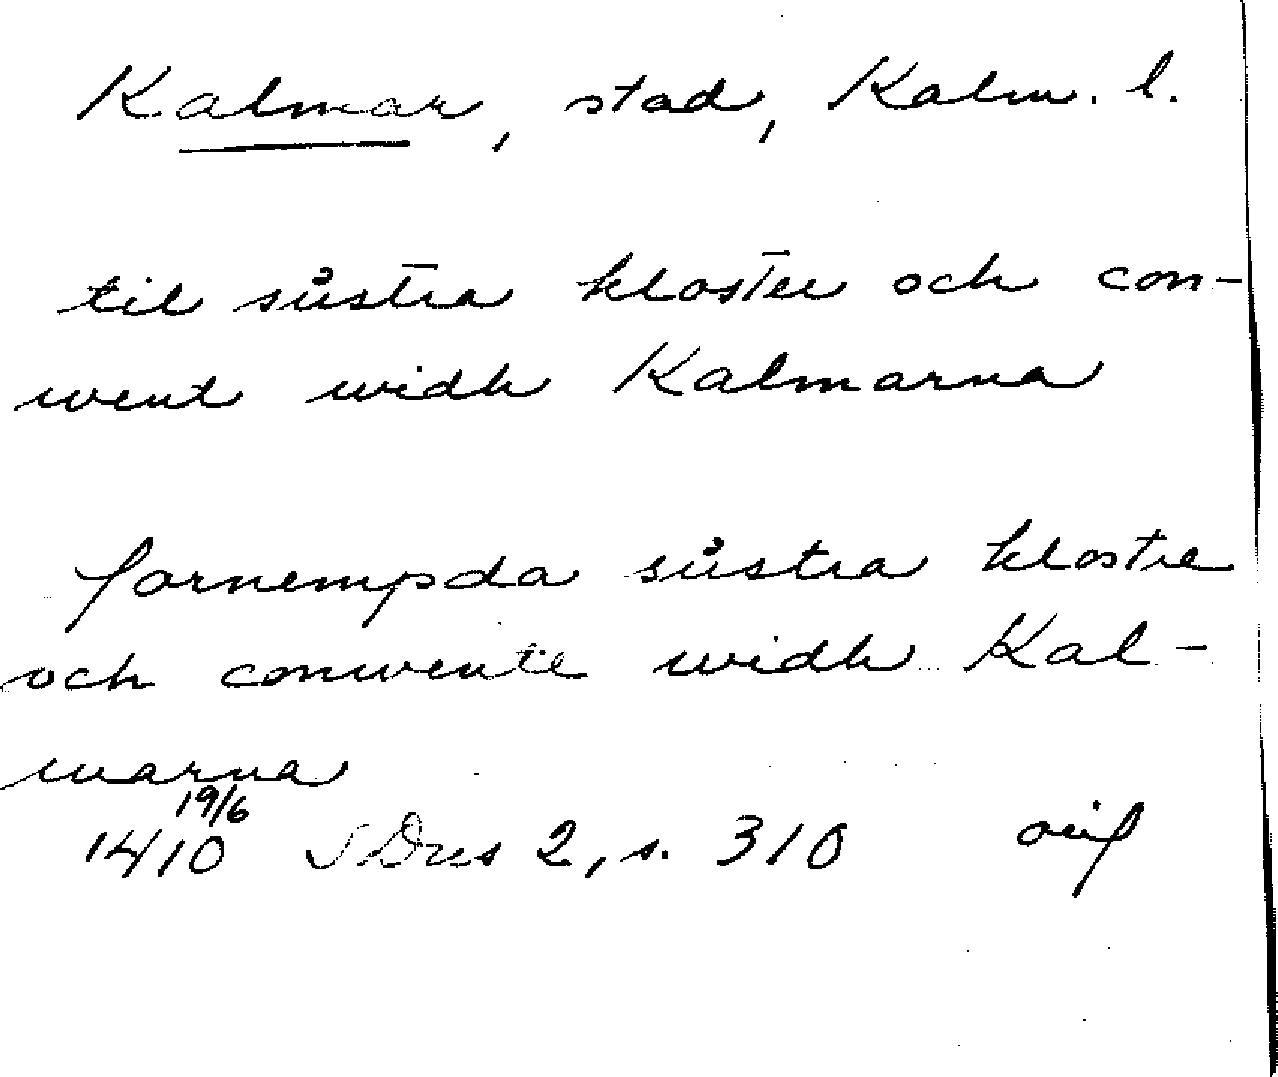 Kalmar, stad, Kalm. l.
til sůstra kloster och con-
went widh Kalmarna
fornempda sůstra klostre
och conwente widh Kal-
marna
19/6
1410 SDns 2, s. 310